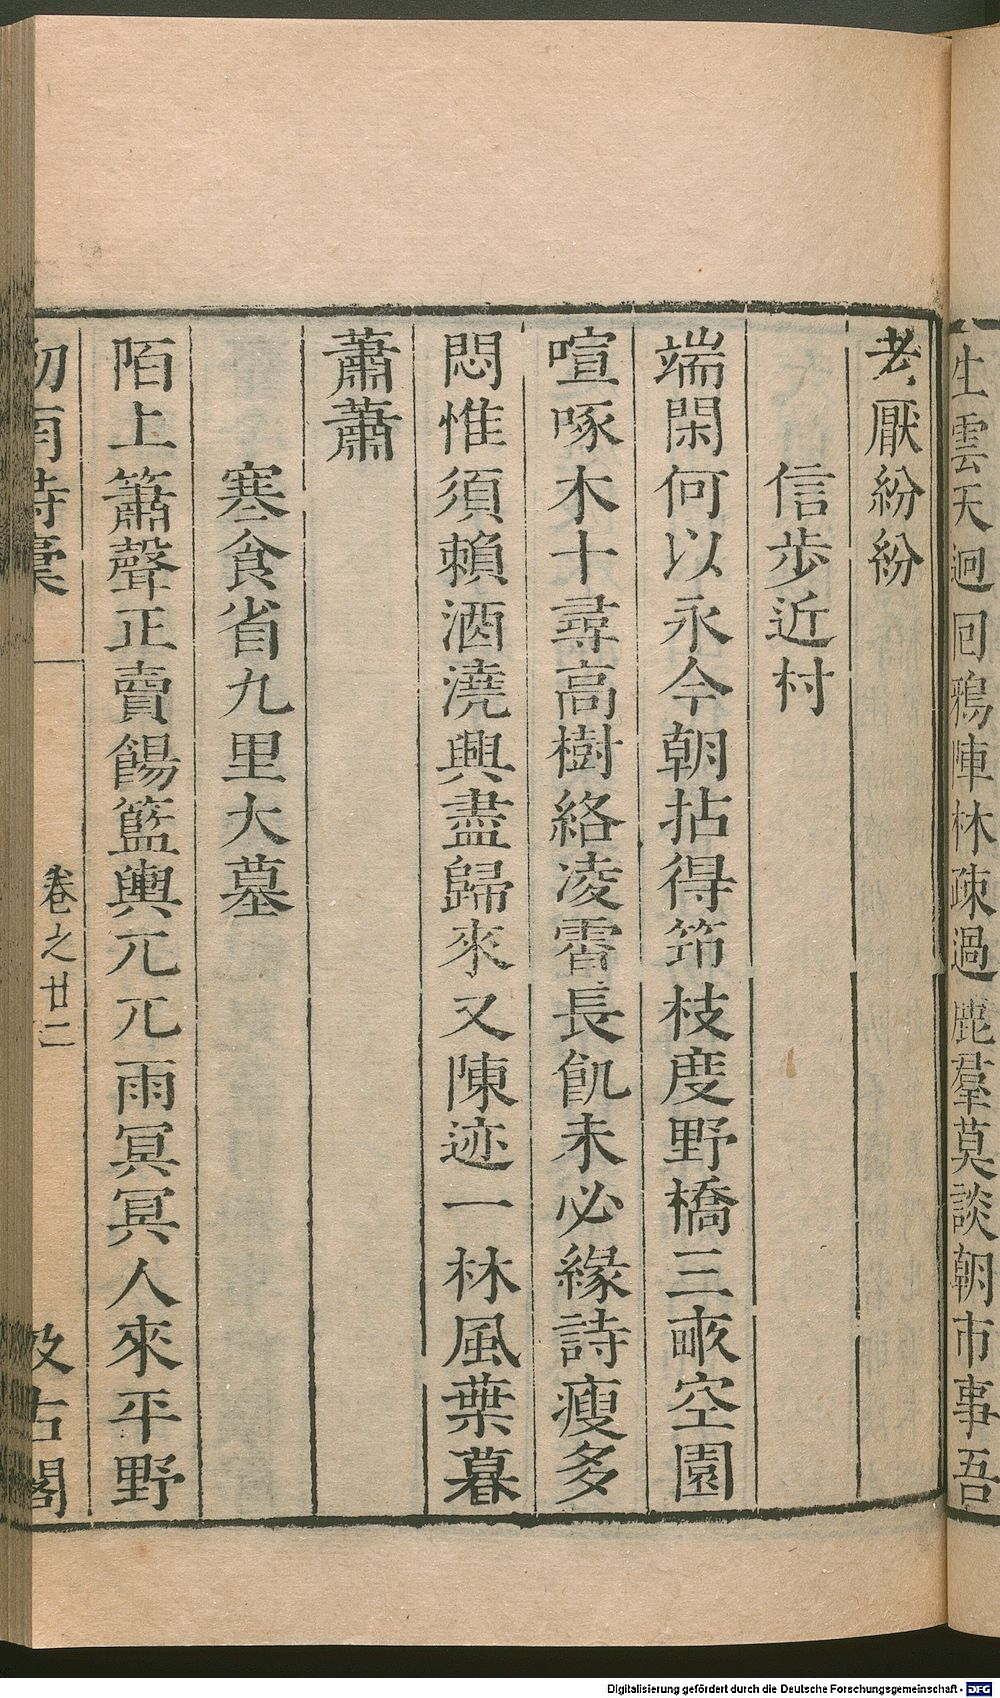 生雲天迥囘鴉陣林疎過鹿羣莫談朝市事吾
老厭紛紛
信步近村
端閑何以永今朝拈得笻枝度野橋三畝空園
喧啄木十尋高樹絡凌霄長飢未必緣詩瘦多
悶惟須賴酒澆興盡歸來又陳迹一林風葉暮
蕭蕭
寒食省九里大墓
陌上簫聲正賣餳籃輿兀兀雨冥冥人來平野
劒南詩稾
卷之廿二
汲古閣
Digitalisierung gefördert durch die Deutsche Forschungsgemeinschaft - DFG